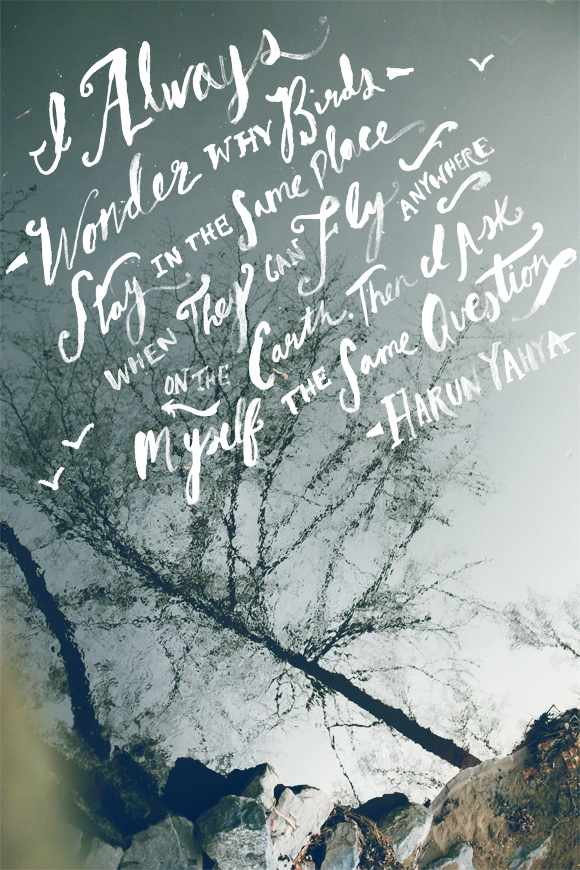 I Always
Wonder WHY Birds
Stay IN THE Same Place
WHEN They CAN Fly ANYWHERE
ON THE Earth. Then I Ask
Myself THE Same Question
- HARUN YAHYA